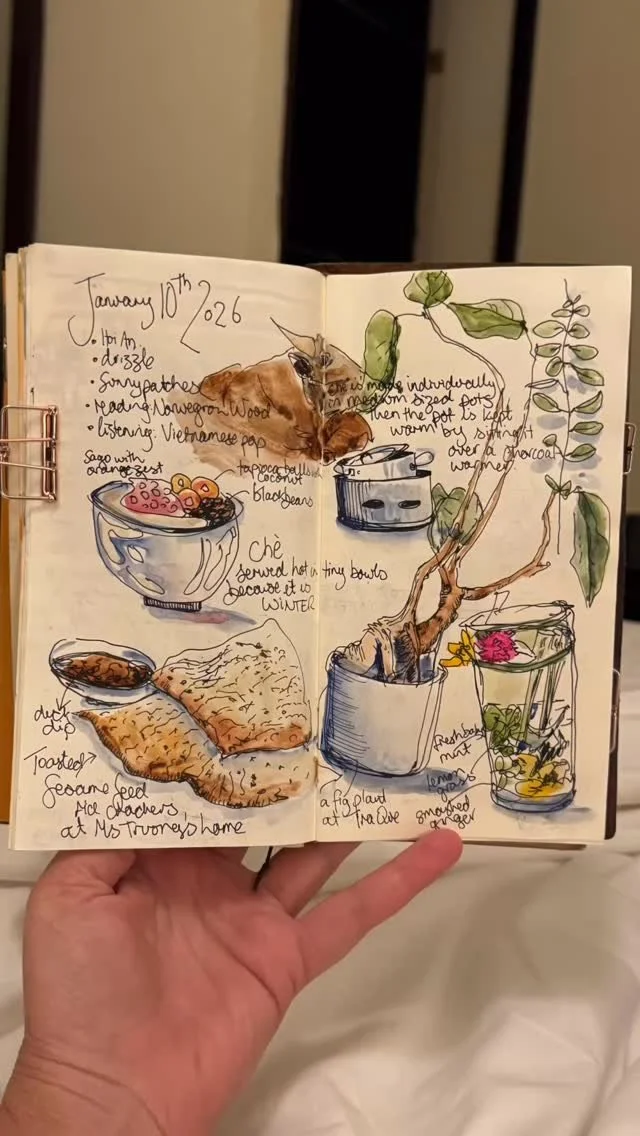 January 10th 2026
• Hoi An
• drizzle
• Sunny patches
• reading: Norwegian Wood
• listening: Vietnamese pop
is made individually
in medium sized pots
then the pot is kept
warm by sitting
over a charcoal
warmer
sago with
orange zest
tapioca balls
coconut
black beans
chè
served hot in tiny bowls
because it is
WINTER
dip
Toasted
Sesame Seed
Rice Crackers
at Ms Truong's home
a fig plant
at Tra Que
fresh baby
mint
lemon
grass
smashed
ginger